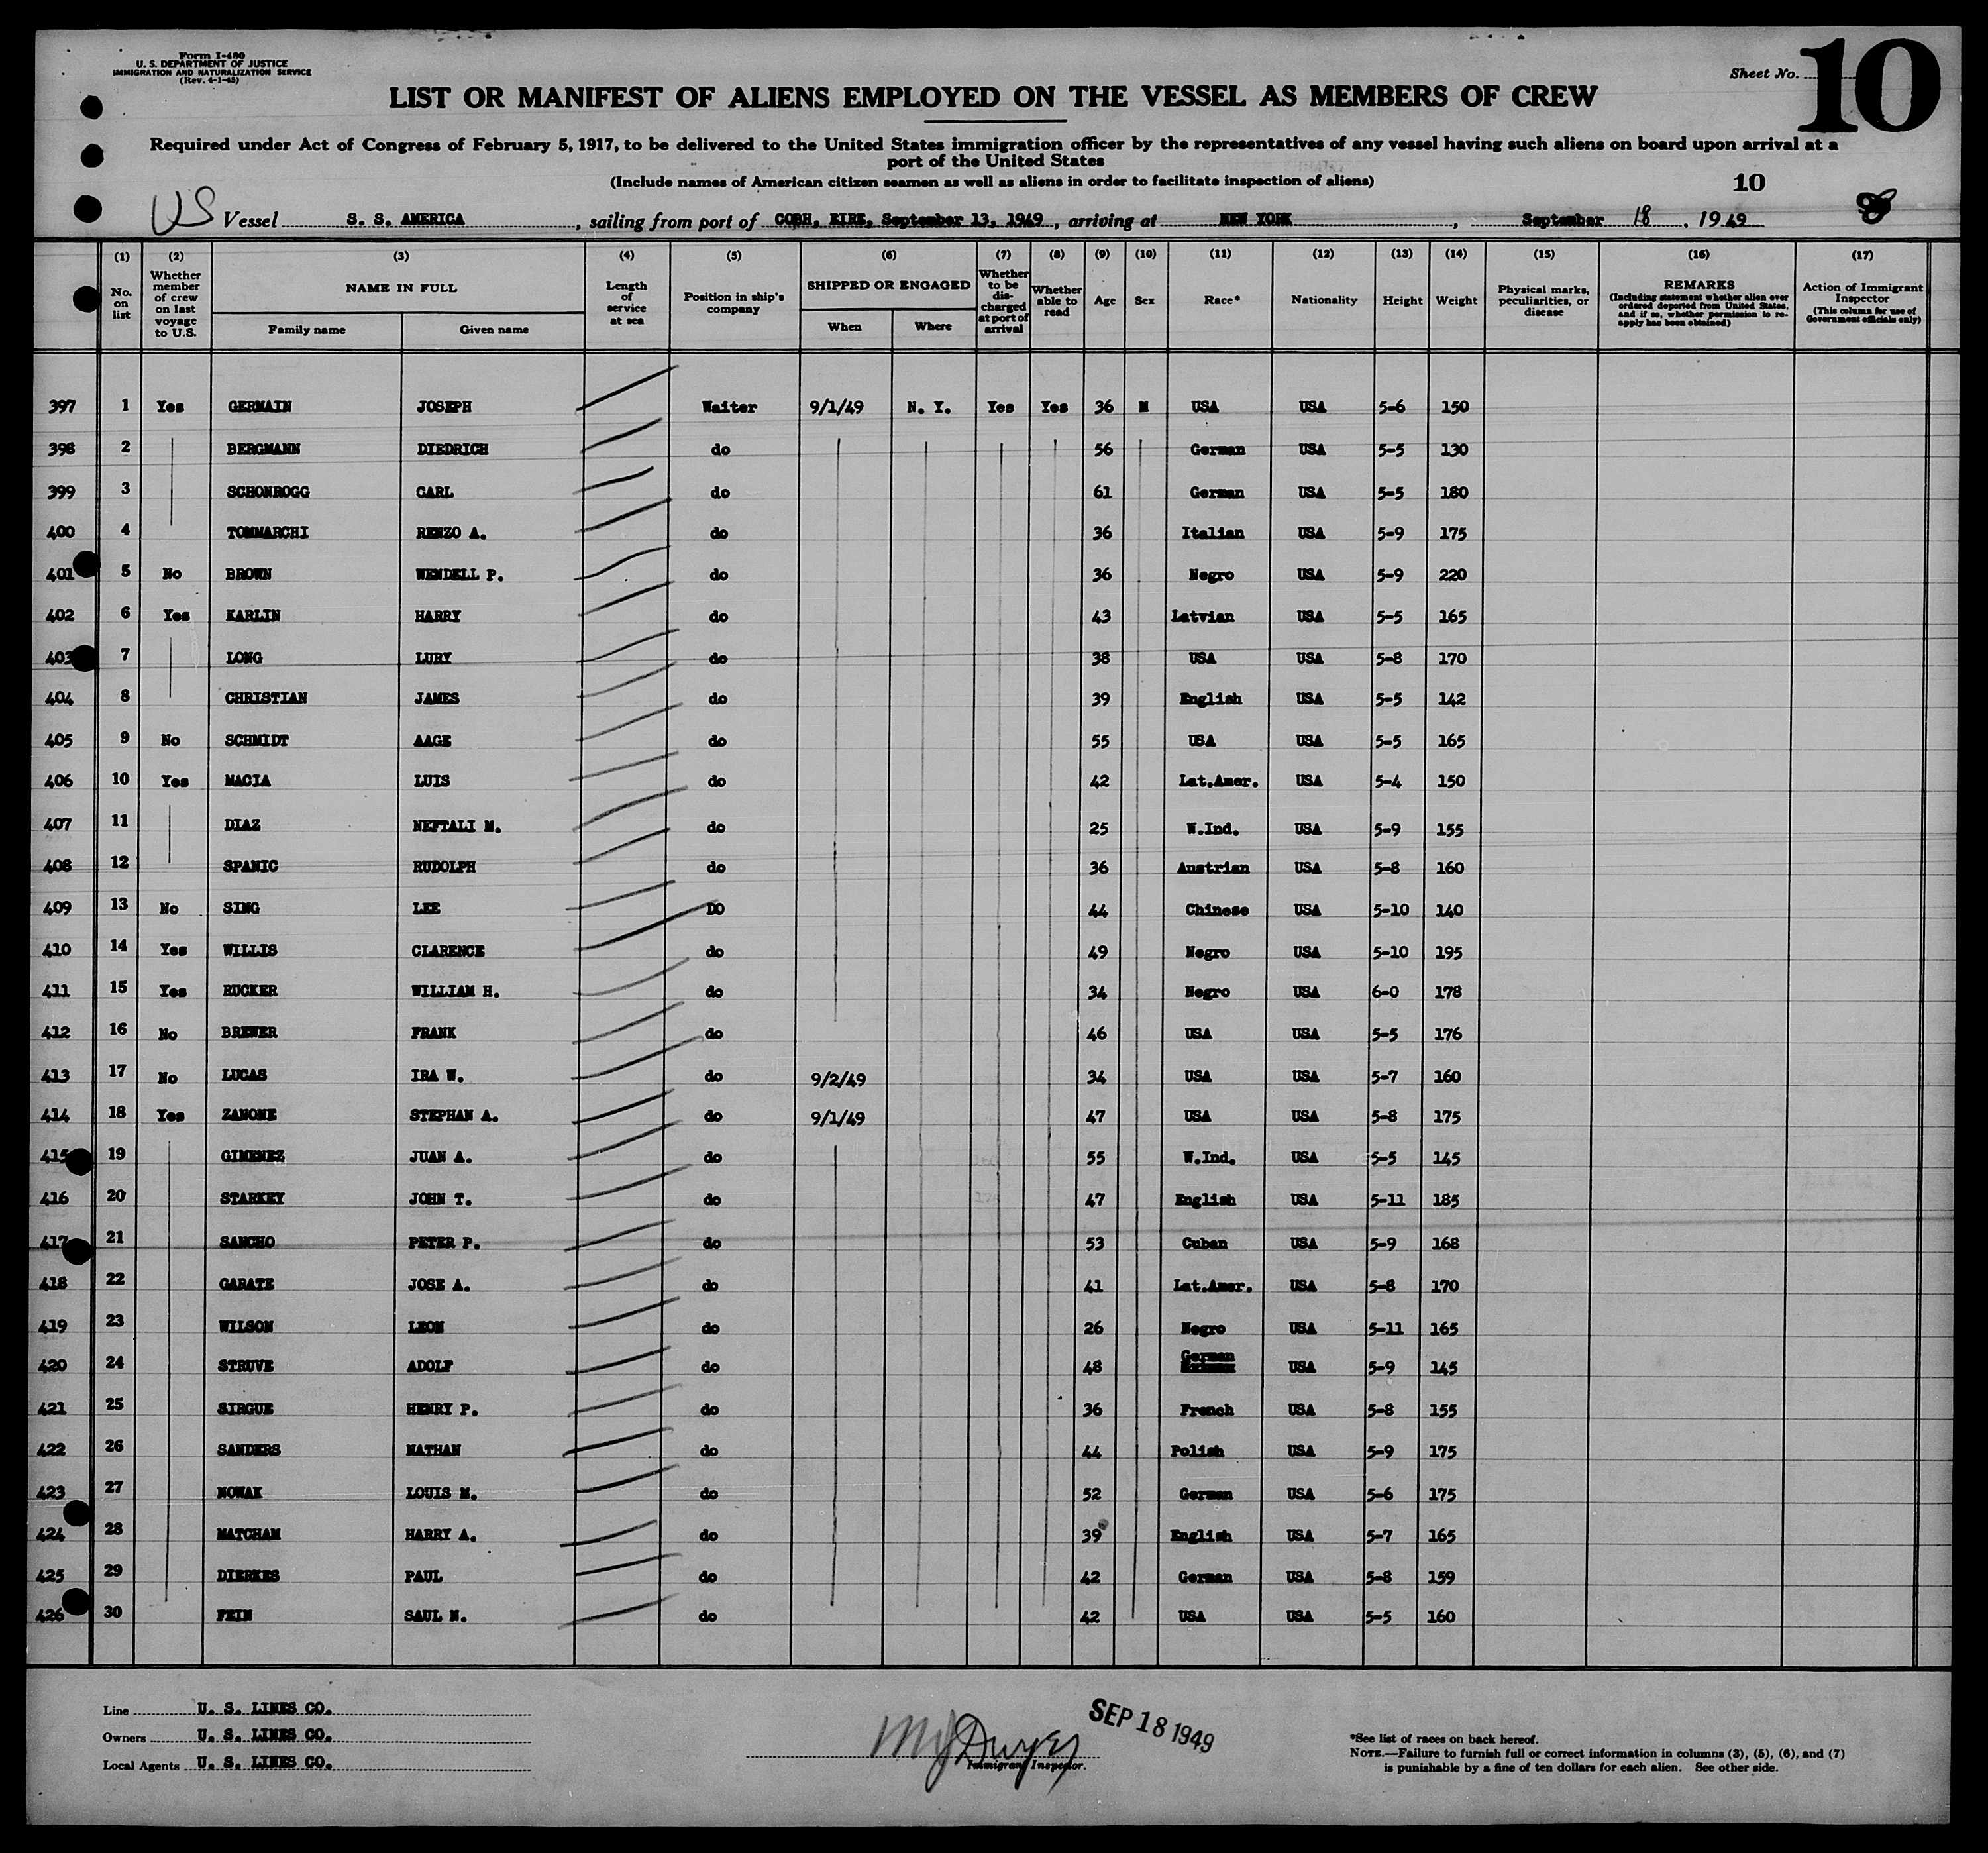 Form I-480
U. S. DEPARTMENT OF JUSTICE
IMMIGRATION AND NATURALIZATION SERVICE
(Rev. 4-1-45)
Sheet No. 10
LIST OR MANIFEST OF ALIENS EMPLOYED ON THE VESSEL AS MEMBERS OF CREW
Required under Act of Congress of February 5, 1917, to be delivered to the United States immigration officer by the representatives of any vessel having such aliens on board upon arrival at a
port of the United States
(Include names of American citizen seamen as well as aliens in order to facilitate inspection of aliens)
10
US Vessel S. S. AMERICA, sailing from port of COBH, EIRE, September 13, 1949, arriving at NEW YORK, September 18, 1949
(1) No. on list (2) Whether member of crew on last voyage to U.S. (3) NAME IN FULL Family name Given name (4) Length of service at sea (5) Position in ship's company (6) SHIPPED OR ENGAGED When Where (7) Whether to be discharged at port of arrival (8) Whether able to read (9) Age (10) Sex (11) Race* (12) Nationality (13) Height (14) Weight (15) Physical marks, peculiarities, or disease (16) REMARKS (Including statement whether alien ever ordered deported from United States, and if so, whether permission to re-apply has been obtained) (17) Action of Immigrant Inspector (This column for use of Government officials only)
397 1 Yes GERMAIN JOSEPH Waiter 9/1/49 N. Y. Yes Yes 36 M USA USA 5-6 150
398 2 BERGMANN DIEDRICH do 56 German USA 5-5 130
399 3 SCHONROGG CARL do 61 German USA 5-5 180
400 4 TOMMARCHI RENZO A. do 36 Italian USA 5-9 175
401 5 No BROWN WENDELL P. do 36 Negro USA 5-9 220
402 6 Yes KARLIN HARRY do 43 Latvian USA 5-5 165
403 7 LONG LURY do 38 USA USA 5-8 170
404 8 CHRISTIAN JAMES do 39 English USA 5-5 142
405 9 No SCHMIDT AAGE do 55 USA USA 5-5 165
406 10 Yes MACIA LUIS do 42 Lat.Amer. USA 5-4 150
407 11 DIAZ NEFTALI M. do 25 W.Ind. USA 5-9 155
408 12 SPANIC RUDOLPH do 36 Austrian USA 5-8 160
409 13 No SING LEE DO 44 Chinese USA 5-10 140
410 14 Yes WILLIS CLARENCE do 49 Negro USA 5-10 195
411 15 Yes RUCKER WILLIAM H. do 34 Negro USA 6-0 178
412 16 No BREWER FRANK do 46 USA USA 5-5 176
413 17 No LUCAS IRA W. do 9/2/49 34 USA USA 5-7 160
414 18 Yes ZANONE STEPHAN A. do 9/1/49 47 USA USA 5-8 175
415 19 GIMENEZ JUAN A. do 55 W.Ind. USA 5-5 145
416 20 STARKEY JOHN T. do 47 English USA 5-11 185
417 21 SANCHO PETER P. do 53 Cuban USA 5-9 168
418 22 GARATE JOSE A. do 41 Lat.Amer. USA 5-8 170
419 23 WILSON LEON do 26 Negro USA 5-11 165
420 24 STRUVE ADOLF do 48 German USA 5-9 145
421 25 SIRGUE HENRY P. do 36 French USA 5-8 155
422 26 SANDERS NATHAN do 44 Polish USA 5-9 175
423 27 NOWAK LOUIS M. do 52 German USA 5-6 175
424 28 MATCHAM HARRY A. do 39 English USA 5-7 165
425 29 DIERKES PAUL do 42 German USA 5-8 159
426 30 FEIN SAUL N. do 42 USA USA 5-5 160
Line U. S. LINES CO.
Owners U. S. LINES CO.
Local Agents U. S. LINES CO.
Dwyer
Immigrant Inspector.
SEP 18 1949
*See list of races on back hereof.
NOTE.—Failure to furnish full or correct information in columns (3), (5), (6), and (7)
is punishable by a fine of ten dollars for each alien. See other side.